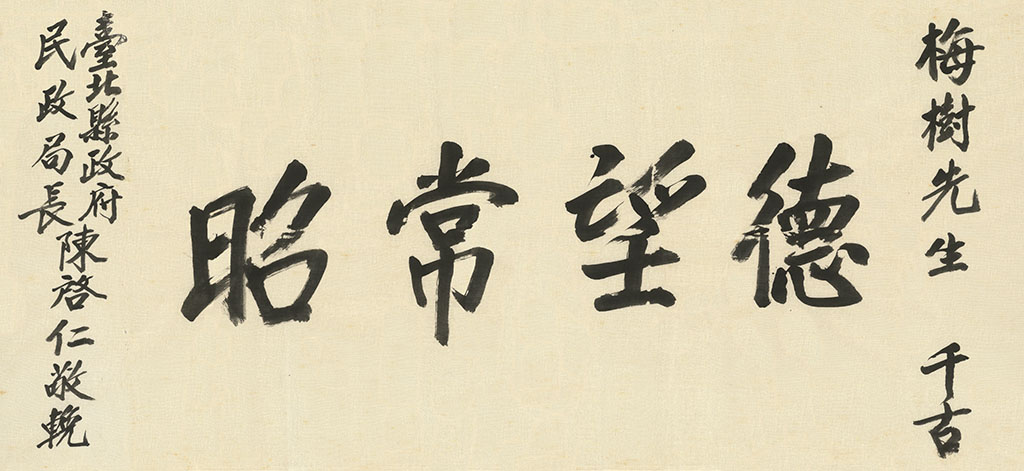 梅樹先生 千古
德望常昭
臺北縣政府
民政局長 陳啓仁敬輓